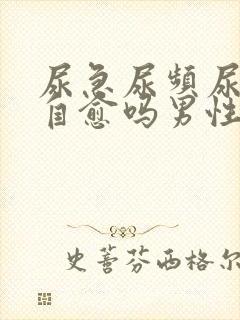 尿急尿频尿
自愈吗男性
史蒂芬西格尔